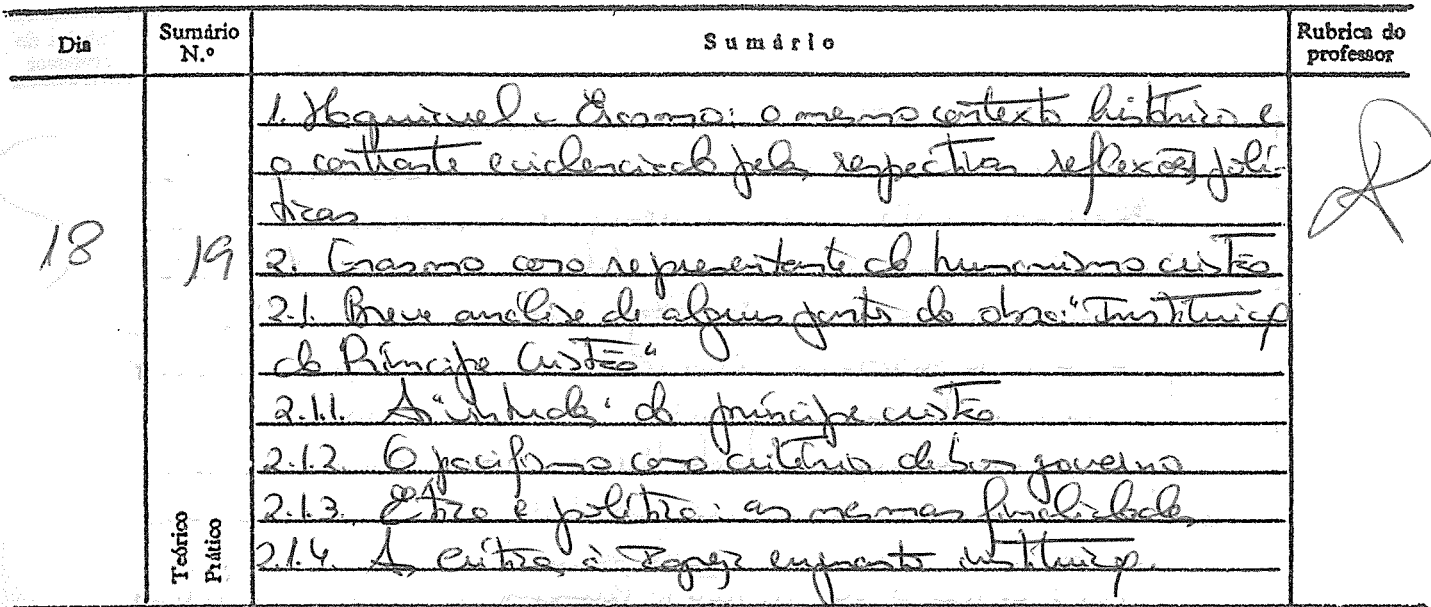 Dia
Sumário N.º
Sumário
Rubrica do professor
1. Maquiavel e Erasmo: o mesmo contexto histórico e
o contraste evidenciado pelas respectivas reflexões polí-
ticas
18
19
2. Erasmo como representante do humanismo cristão
2.1. Breve análise de alguns pontos da obra: "Instituição
do Príncipe Cristão"
2.1.1. A "virtude" do príncipe cristão
2.1.2. O pacifismo como critério de bom governo
2.1.3. Ética e política: as mesmas finalidades
2.1.4. A crítica à enquanto instituição.
Teórico
Prático